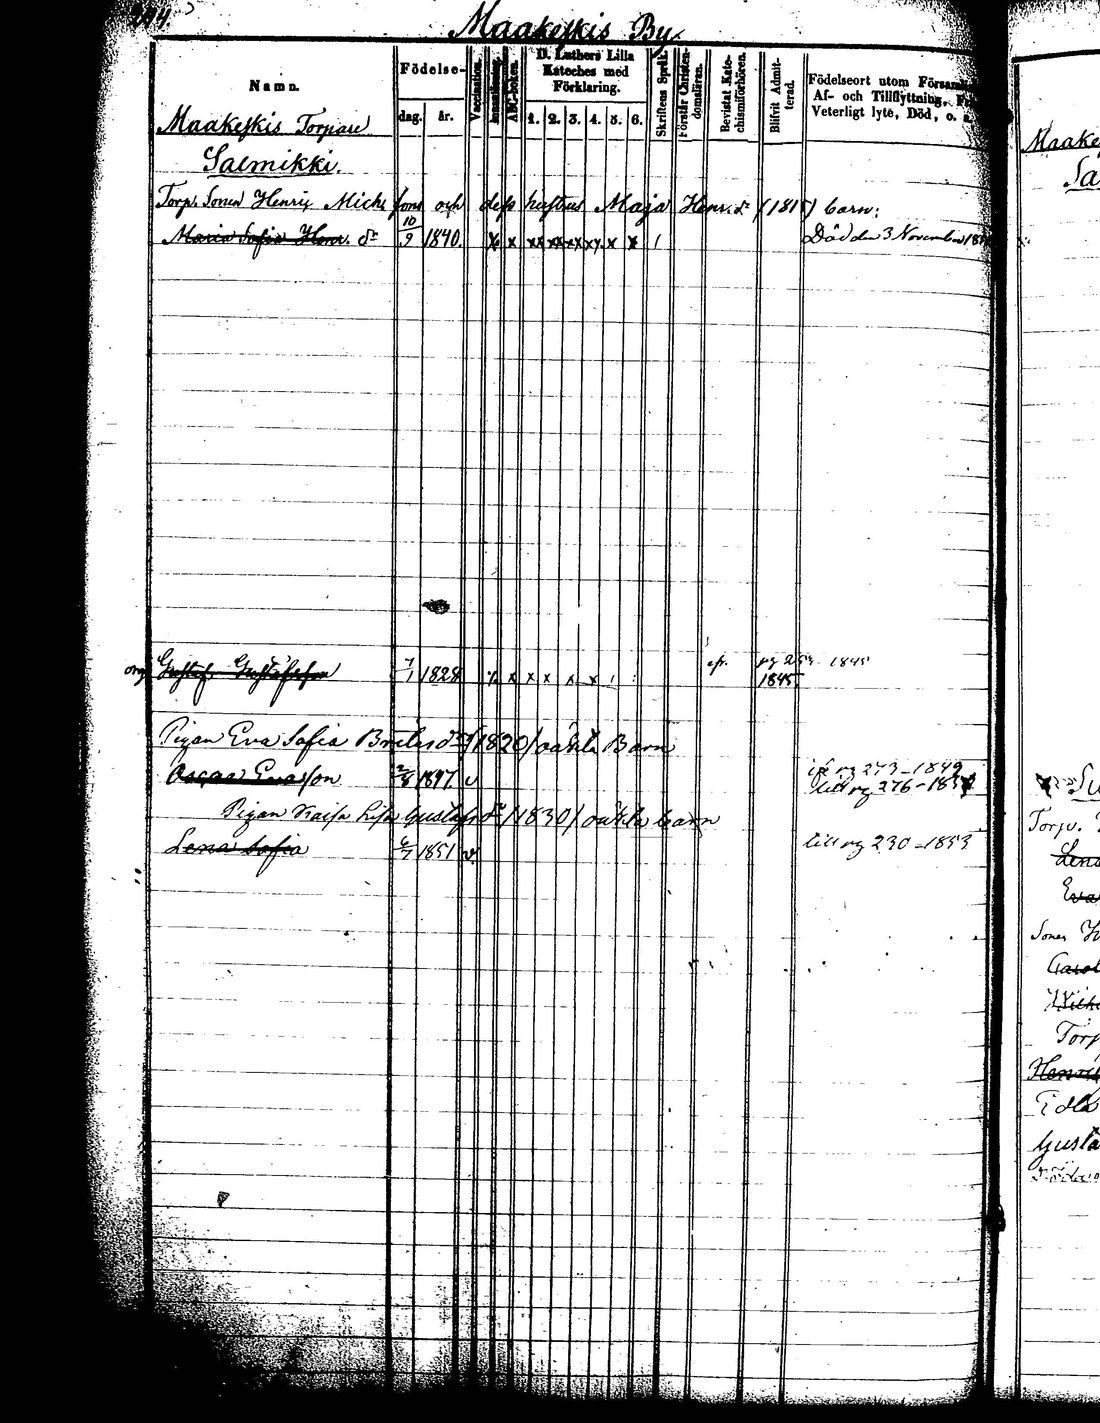 294.
Maakeskis By.
Namn.
Födelse-
dag. år.
Vaccination.
Innanläsning.
ABC-boken.
D. Luthers Lilla
Kateches med
Förklaring.
1. 2. 3. 4. 5. 6.
Skriftens Språk.
Förstår Christen-
domsläran.
Bevistat Kate-
chismiförhören.
Blifvit Admit-
terad.
Födelseort utom Försam
Af- och Tillflyttning,
Veterligt lyte, Död, o.
Maakeskis Torpare
Salmikki.
Torp. Sonen Henrik Michs sons och dess hustrus Maja Henr. dr (1815) barn:
Maria Sofia Henr. dr 10/9 1840. x x xx xx xx xx x x / Död den 3 November
Gustaf Gustafsson 7/1 1828 x x x x x pg 254 1845
1845.
Pigan Eva Sofia Brita dr (1820) oäkta Barn
Oscar Evasson 2/8 1847. v pg 273-1849
till pg 276-185
Pigan Kaisa Lisa Gustafs dr (1830) oäkta barn
Lena Sofia 6/7 1851 v. till pg 230-1853
Maake
Sa
Torp.
Lena
Eva
Sonen
Carol
Wilh
Torp
Henrik
Gusta